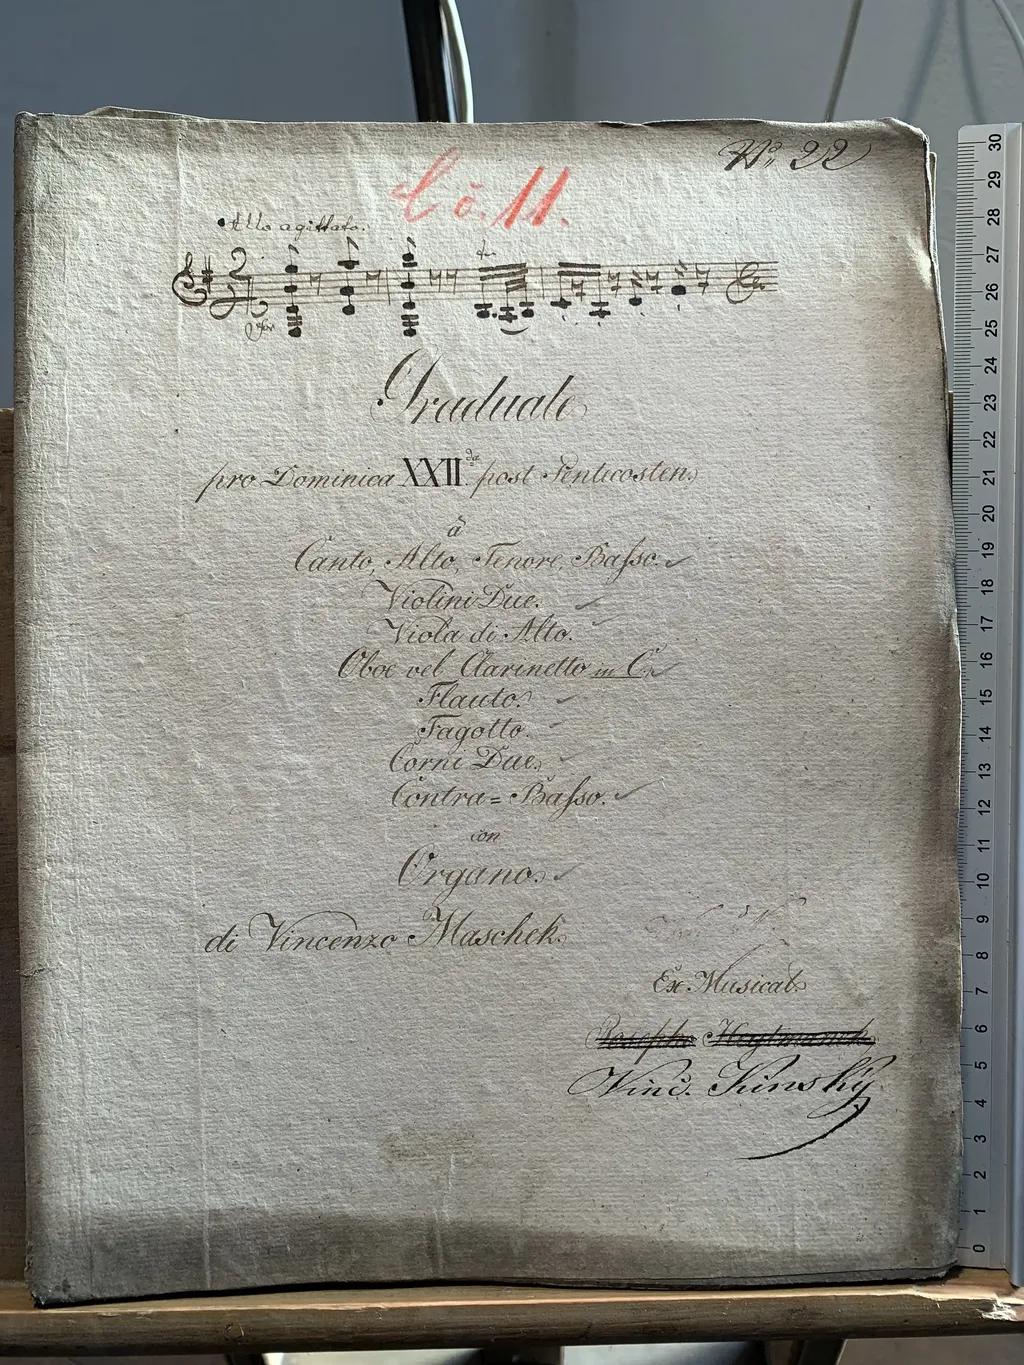 No. 22
Č č. 11.
Allo agittato.
Graduale
pro Dominica XXII.da post Pentecosten.
à
Canto, Alto, Tenore, Basso.
Violini Due.
Viola di Alto.
Oboe vel Clarinetto in C.
Flauto.
Fagotto.
Corni Due.
Contra= Basso.
con
Organo.
di Vincenzo Maschek.
Ex Musical.
Josepho
Vinč. Kinský
30
29
28
27
26
25
24
23
22
21
20
19
18
17
16
15
14
13
12
11
10
9
8
7
6
5
4
3
2
1
0